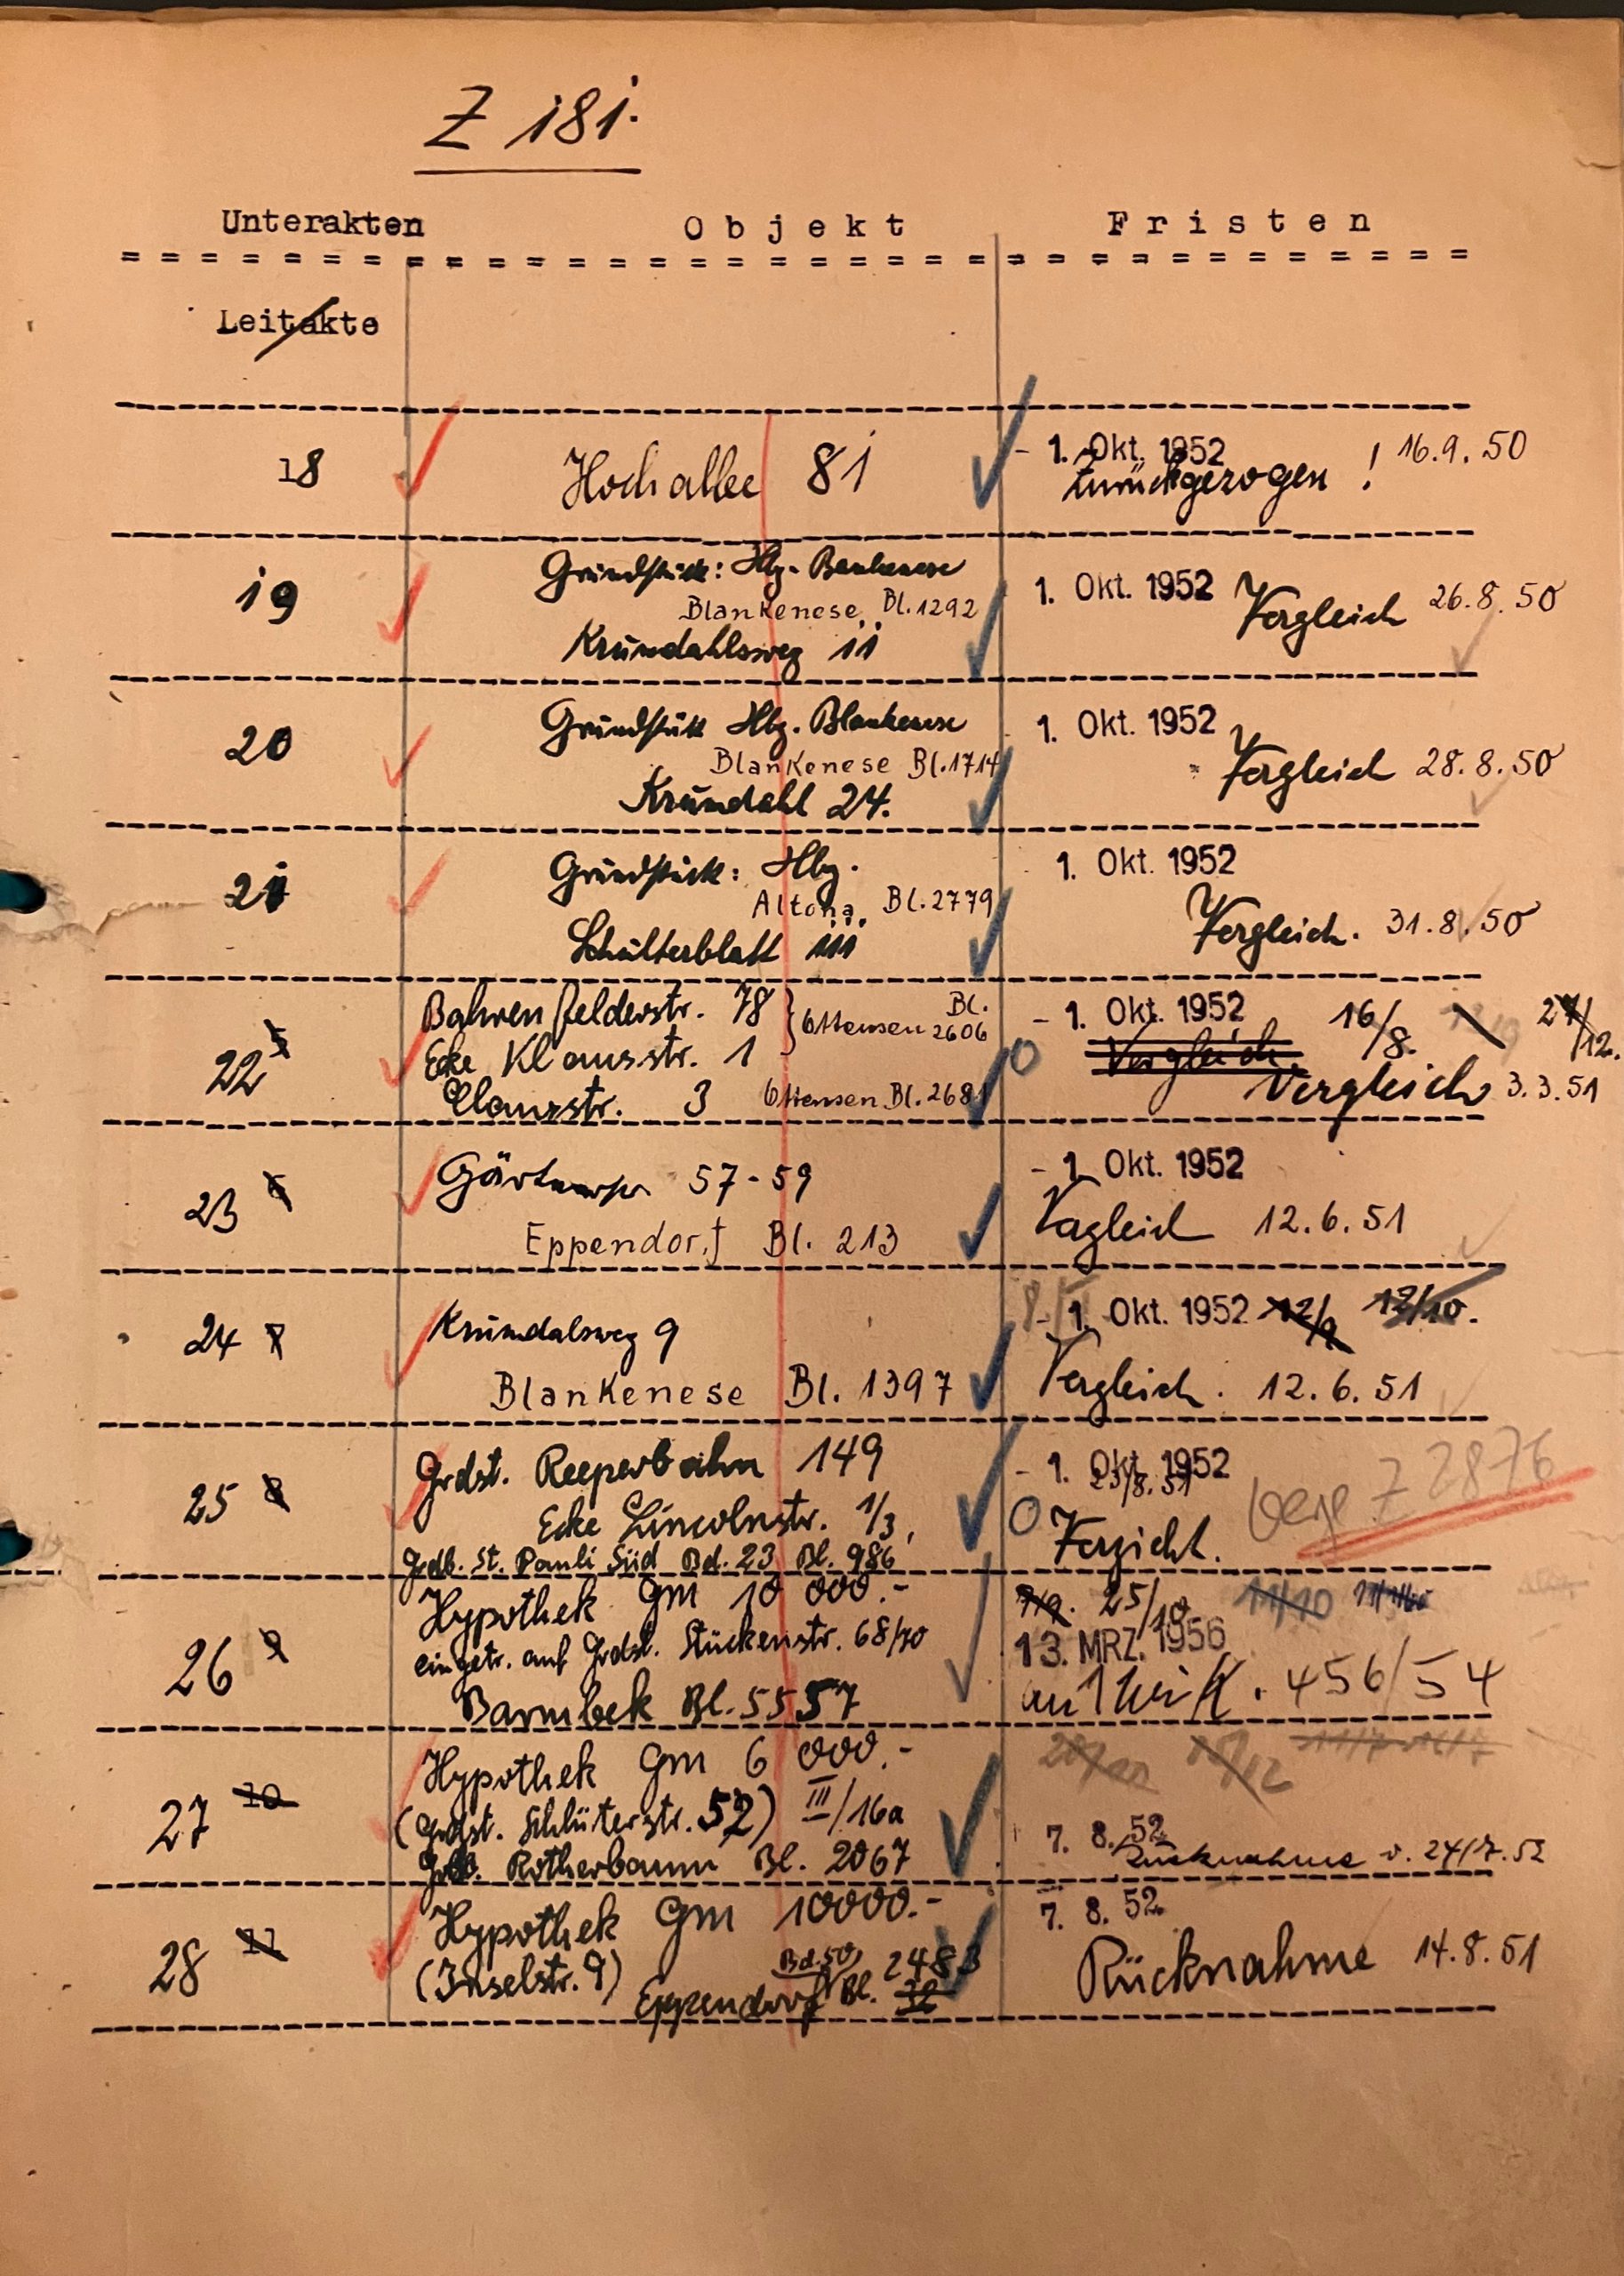 Z 181.
Unterakten Objekt Fristen
Leitakte
18 Hochallee 81 - 1. Okt. 1952 16.9.50
zurückgezogen !
19 Grundstück: Hbg. Blankenese 1. Okt. 1952 26.8.50
Blankenese, Bl. 1292 Vergleich
Krumdahlsweg 11
20 Grundstück Hbg. Blankenese 1. Okt. 1952
Blankenese Bl. 1714 Vergleich 28.8.50
Krumdahl 24.
21 Grundstück: Hbg. 1. Okt. 1952
Altona, Bl. 2779 Vergleich. 31.8.50
Schulterblatt 111
Bahrenfelderstr. 78 } Ottensen Bl. 2606 - 1. Okt. 1952 16/8. 27/12.
22 5 Ecke Klausstr. 1 Vergleich
Clausstr. 3 Ottensen Bl. 2681 Vergleich 3.3.51
23 6 Gärtnerstr 57-59 - 1. Okt. 1952
Eppendorf Bl. 213 Vergleich 12.6.51
24 7 Krumdalsweg 9 - 1. Okt. 1952 12/9 12/10.
Blankenese Bl. 1397 Vergleich. 12.6.51
25 8 Grdst. Reeperbahn 149 - 1. Okt. 1952
23/8.51
Ecke Lincolnstr. 1/3, Verzicht. Z 2876
Grdb. St. Pauli Süd Bd. 23 Bl. 986
Hypothek Gm 10 000.- 7/9. 25/10 11/10
26 9 eingetr. auf Grdst. Stückenstr. 68/70 13. MRZ. 1956
Barmbek Bl. 5557 an 1 Wik. 456/54
Hypothek Gm 6 000.-
27 10 (Grdst. Schlüterstr. 52) III/16a 7. 8. 52
Grdb. Rotherbaum Bl. 2067 Rücknahme v. 24/7.52
Hypothek Gm 10000.- 7. 8. 52
28 11 (Inselstr. 9) Bd. 50 2483 Rücknahme 14.8.51
Eppendorf Bl.